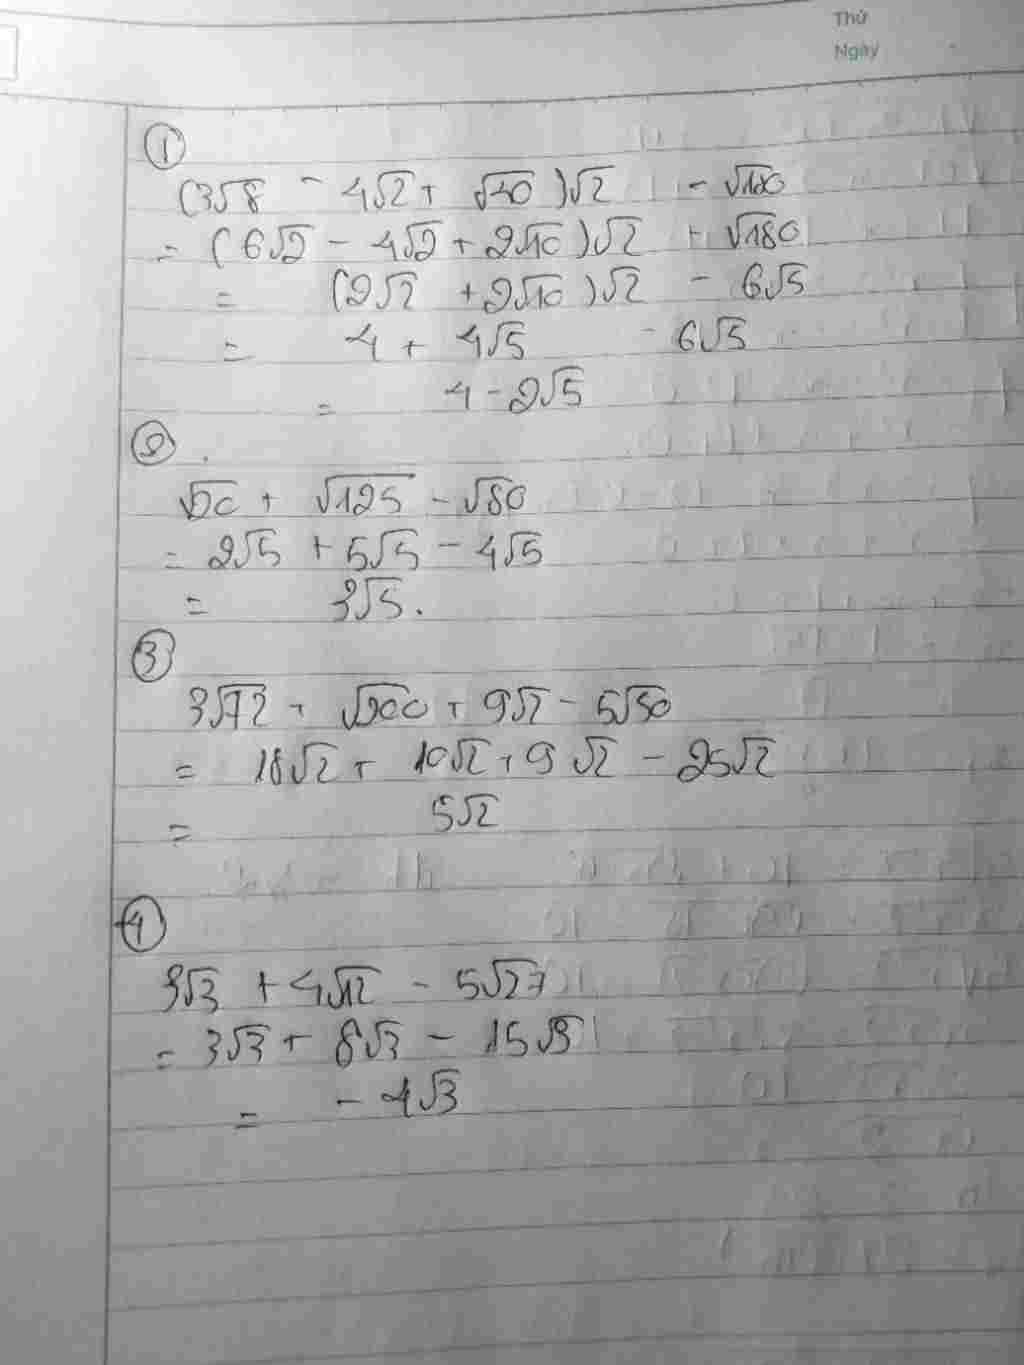 Thứ
Ngày
①
(3√8 - 4√2 + √40)√2 - √180
= (6√2 - 4√2 + 2√10)√2 + √180
= (2√2 + 2√10)√2 - 6√5
= 4 + 4√5 - 6√5
= 4 - 2√5
②
√20 + √125 - √80
= 2√5 + 5√5 - 4√5
= 3√5.
③
3√72 + √200 + 9√2 - 5√50
= 18√2 + 10√2 + 9√2 - 25√2
= 5√2
④
3√3 + 4√12 - 5√27
= 3√3 + 8√3 - 15√3
= - 4√3